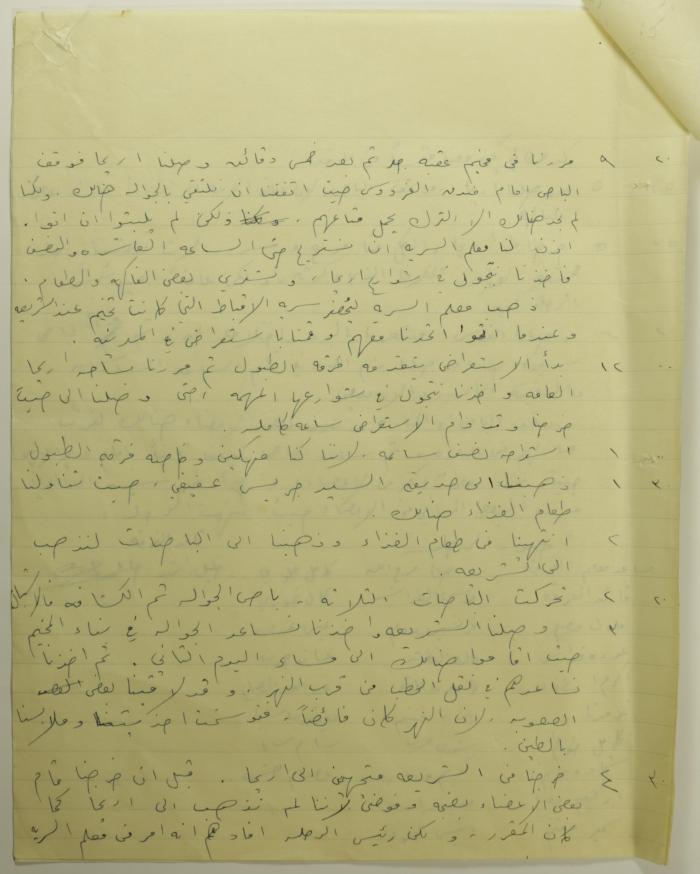 ٩ ٢٠ مررنا في مخيم عقبة جبر ثم بعد خمس دقائق وصلنا اريحا فوقف
الباص امام فندق الفردوس حيث اتفقنا ان نلتقي بالجواله هنالك. ولكنا
لم نجد هنالك الا الترك يحمل متاعهم. ولكن لم يلبثوا ان اتوا.
اذن لنا معلم السريه ان نستريح حتى الساعه العاشره والنصف
فاخذنا نتجول في شوارع اريحا، ونشتري بعض الفاكهه والطعام.
ذهب معلم السريه ليحضر سرية الاقباط التي كانت تخيم عند الشريعه
وعندما اتوا اتحدنا معهم وقمنا باستعراض في المدينه.
١٢ ٠٠ بدأ الاستعراض يتقدمه فرقه الطبول ثم مررنا بساحه اريحا
العامه واخذنا نتجول في شوارعها المهمه حتى وصلنا الى حيث
خرجنا وقد دام الاستعراض ساعه كامله.
١ ٠٠ استراحه لنصف ساعه، لاننا كنا منهكين وخاصه فرقه الطبول
١ ٣٠ ذهبنا الى حديقه السيد جريس عفيفي، حيث تناولنا
طعام الغذاء هنالك.
٢ انتهينا من طعام الغذاء وذهبنا الى الباصات لنذهب
الى الشريعه.
٢ ٢٠ تحركت الباصات الثلاثه، باص الجواله ثم الكشافه فالاشبال
٣ وصلنا الشريعه واخذنا نساعد الجواله في بناء المخيم
حيث اقاموا هنالك الى مساء اليوم الثاني. ثم اخذنا
نساعدهم في نقل الحطب من قرب النهر، وقد لاقينا بعض
الصعوبه، لان النهر كان فائضاً، فتوسخت احذيتنا وملابسنا
بالطين.
٤ ٣٠ خرجنا من الشريعه متجهين الى اريحا. قبل ان خرجنا قام
بعض الاعضاء بضجه وفوضى لاننا لم نذهب الى اريحا كما
كان المقرر، ولكن رئيس الرحله افادهم انه امر من معلم السريه